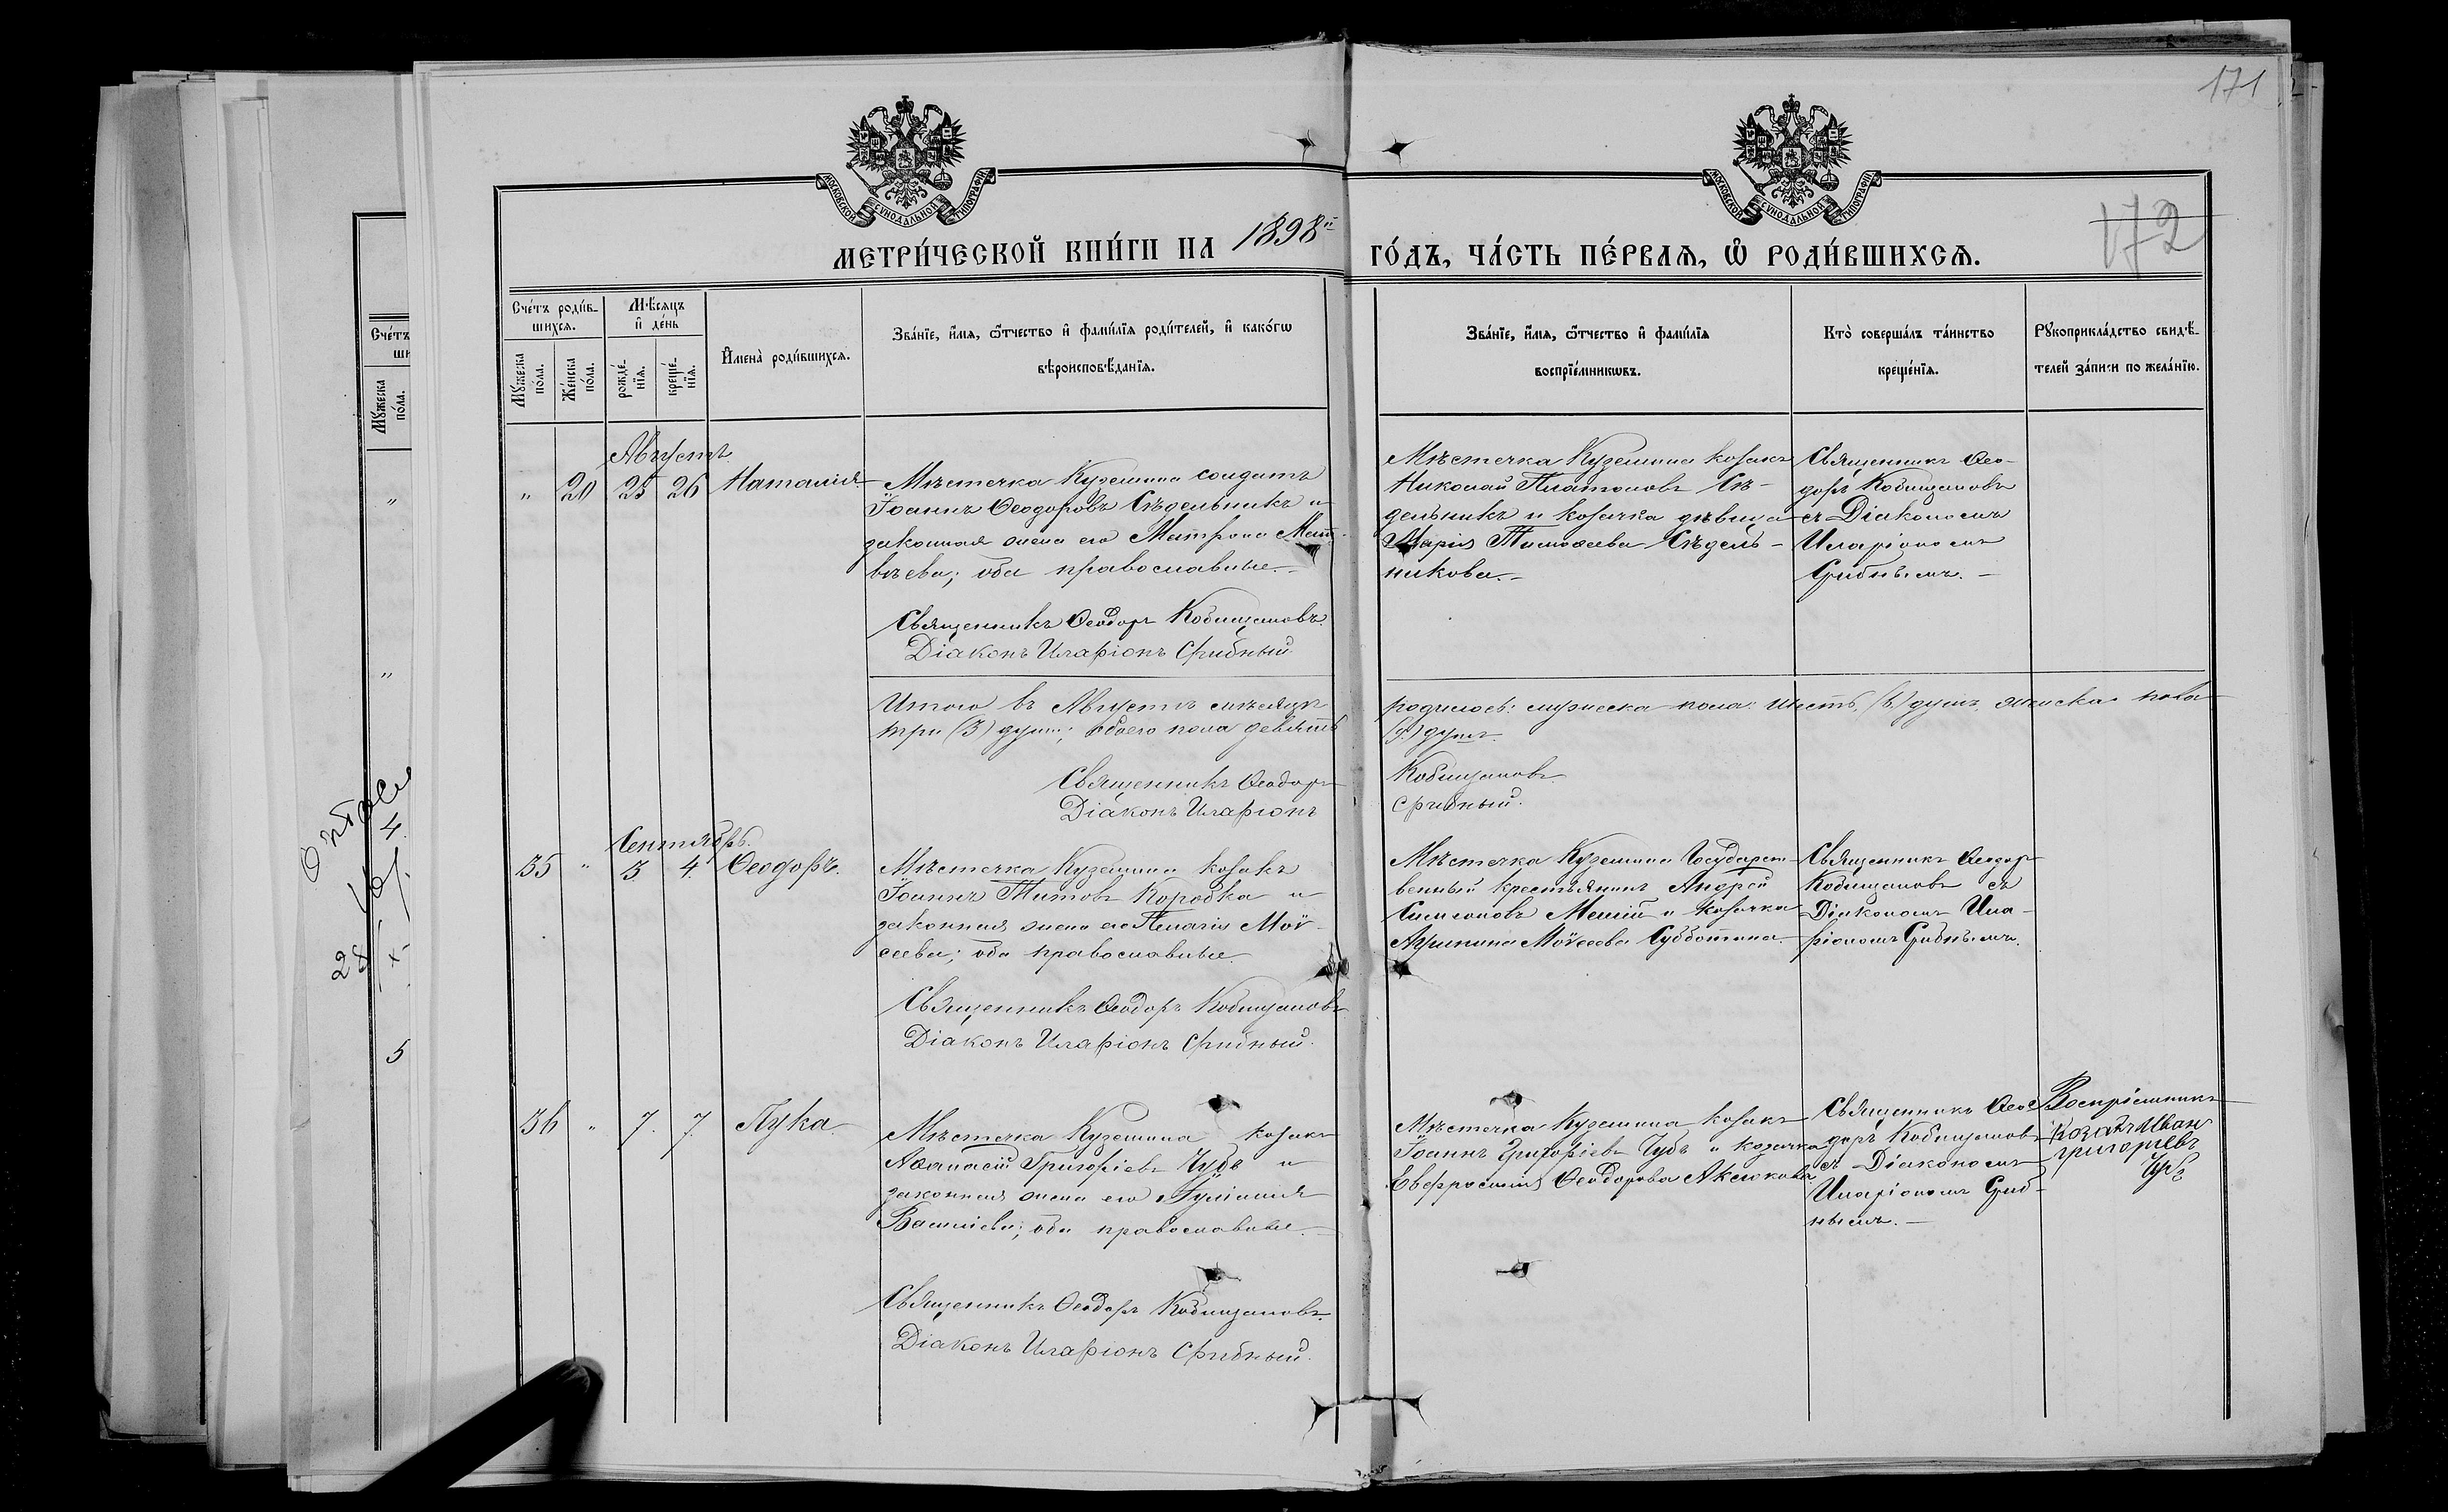 171
172
МОСКОВСКОЙ СѴНОДАЛЬНОЙ ТИПОГРАФІИ
МОСКОВСКОЙ СѴНОДАЛЬНОЙ ТИПОГРАФІИ
МЕТРИ́ЧЕСКОЙ КНИ́ГИ НА 1898й ГО́ДЪ, ЧА́СТЬ ПЕ́РВАѦ, Ѡ҆ РОДИ́ВШИХСѦ.
Сче́тъ роди́в-
шихсѧ.
Мꙋ́жеска
по́ла.
Же́нска
по́ла.
Мѣ́сѧцъ
и҆ де́нь
рожде́-
нїѧ.
креще́-
нїѧ.
И҆мена̀ роди́вшихсѧ.
Зва́нїе, и҆́мѧ, ѻ҆́тчество и҆ фами́лїѧ роди́телей, и҆ како́гѡ
вѣроисповѣ́данїѧ.
Зва́нїе, и҆́мѧ, ѻ҆́тчество и҆ фами́лїѧ
воспрїе́мникѡвъ.
Кто̀ соверша́лъ та́инство
креще́нїѧ.
Рꙋкоприкла́дство свидѣ́-
телей за́писи по жела́нїю.
Августъ
" 20 25 26 Наталія
Мѣстечка Куземина солдатъ
Іоаннъ Ѳеодоровъ Сѣдельникъ и
законная жена его Матрона Мат-
вѣева; оба православные.
Священникъ Ѳеодоръ Кобищановъ
Діаконъ Иларіонъ Срибный
Мѣстечка Куземина козакъ
Николай Платоновъ Сѣ-
дельникъ и козачка дѣвица
Марія Тимоѳеева Сѣдель-
никова.
Священникъ Ѳео-
доръ Кобищановъ
съ Діакономъ
Иларіономъ
Срибнымъ.
Итого въ Августѣ мѣсяцѣ родилось: мужеска пола шесть (6) душъ, женска пола
три (3) души; обоего пола девять (9) душъ.
Священникъ Ѳеодоръ Кобищановъ
Діаконъ Иларіонъ Срибный.
Сентябрь.
35 " 3. 4. Ѳеодоръ.
Мѣстечка Куземина козакъ
Іоаннъ Титовъ Коробка и
законная жена его Пелагія Мої-
сеева; оба православные
Священникъ Ѳеодоръ Кобищановъ
Діаконъ Иларіонъ Срибный.
Мѣстечка Куземина Государст-
венный крестьянинъ Андрей
Симеоновъ и козачка
Агрипина Моїсеева Субботина.
Священникъ Ѳеодоръ
Кобищановъ съ
Діакономъ Ила-
ріономъ Срибнымъ.
36 " 7. 7. Лука
Мѣстечка Куземина козакъ
Аѳанасій Григоріевъ Чубъ и
законная жена его Іуліанія
Василіева; оба православные.
Священникъ Ѳеодоръ Кобищановъ.
Діаконъ Иларіонъ Срибный.
Мѣстечка Куземина козакъ
Іоаннъ Григоріевъ Чубъ и козачка
Евфросинія Ѳеодорова Аксюкова
Священникъ Ѳео-
доръ Кобищановъ
съ Діакономъ
Иларіономъ Сриб-
нымъ.
Воспріемникъ
козакъ Иван
григориевъ
Чубъ
Сче́тъ
ши
Мꙋ́жеска
по́ла.
"
"
5